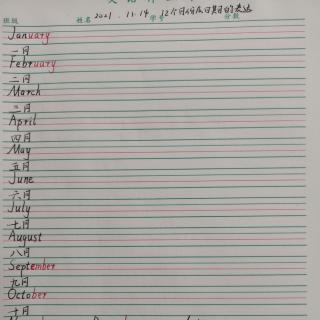 班级 姓名 2021.11.14 学号 12个月份及日期的表达 分数
January
一月
February
二月
March
三月
April
四月
May
五月
June
六月
July
七月
August
八月
September
九月
October
十月